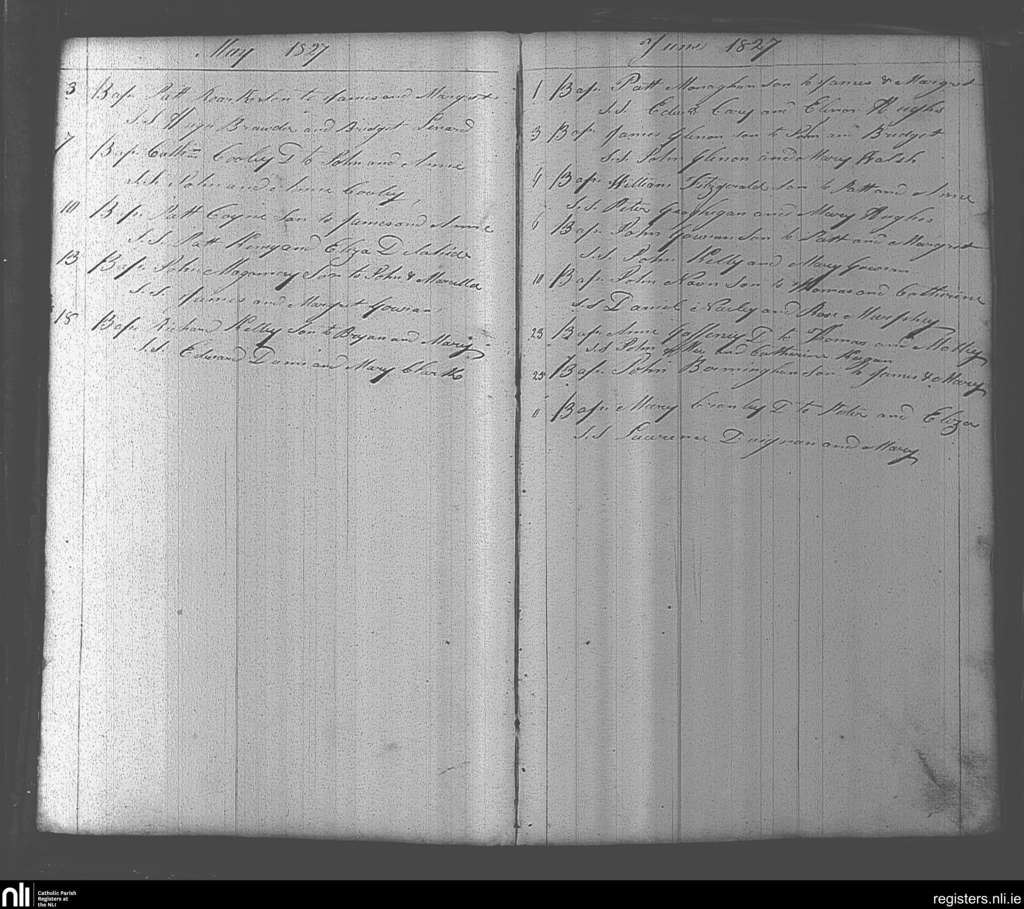 May 1827
3 Bap. Patt son to James and Margret
S.S Hugh Brawder and Bridget Lenard
7 Bap. Cath Cooley D to John and Anne
S.S. John and Anne Cooley
10 Bap. Patt Coyne Son to James and Annie
S.S. Patt Kenny and Eliza
13 Bap. John Magawrey Son to John & Marcella
S.S. James and Margret Gowran
18 Bap. Richard Kelley Son to Bryan and Mary
S.S. Edward and Mary Clark
June 1827
1 Bap. Patt Monaghan Son to James & Margret
S.S. Edwd. Carey and Elenor Hughs
3 Bap. James Glenon son to and Bridget
S.S. John Glenon and Mary Walsh
4 Bap. William Fitzgerald Son to Patt and Anne
S.S. Peter Geoghegan and Mary Hughs
6 Bap. John Gowran Son to Patt and Margret
S.S. John Kelly and Mary Gowran
10 Bap. John Son to Thomas and Catherine
S.S Daniel and Rose Murphey
23 Bap. Anne Gaffoney D to Thomas and Molley
S.S John and Catherine
25 Bap. John Bormingham Son to James & Mary
Bap. Mary D to Peter and Eliza
S.S Lawrence Duignan and Mary
nli Catholic Parish
Registers at
the NLI
registers.nli.ie